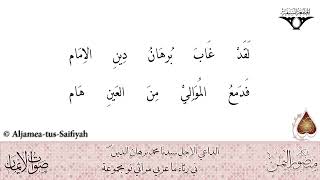 لَقَدْ غَابَ بُرهَانُ دِينِ الاِمَام
فَدَمعُ المُوَالِيْ مِنَ العَينِ هَام
© Aljamea-tus-Saifiyah
الداعي الاجل سيدنا محمد برهان الدين
ني رثاء ما عربي مراثي نو مجموعة